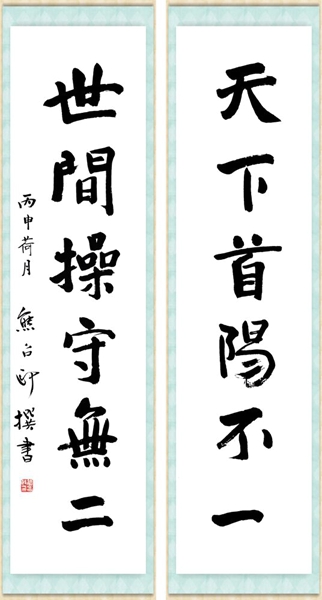 天下首陽不一
世間操守無二
丙申荷月
熊召政撰書